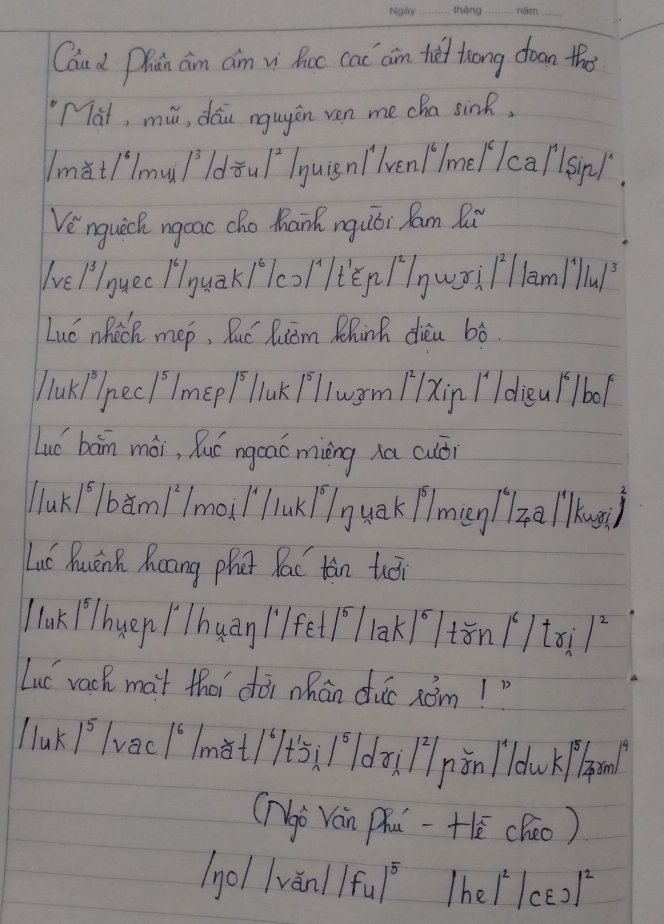 Ngày ......... tháng ......... năm .......
Câu 2 Phiên âm âm vị học các âm tiết trong đoạn thơ
"Mắt, mũi, dấu nguyên vẹn mẹ cha sinh,
/măt/⁶ /mui̯/³ /dɤ̆u/² /ŋuien/¹ /vɛn/⁶ /mɛ/⁶ /ca/¹ /ʂiɲ/¹.
Vẽ nguệch ngoạc cho thành người làm hề
/vɛ/³ /ŋu̯ec/⁶ /ŋu̯ak/⁶ /cɔ/¹ /t'ɛ̆ɲ/² /ŋɯɤi̯/² /lam/¹ /lu/³
Lúc nhếch mép, lúc lườm khinh điệu bộ.
/luk/⁵ /ɲec/⁵ /mɛp/⁵ /luk/⁵ /lɯɤm/² /χiɲ/¹ /dieu/⁶ /bo/⁶
Lúc bặm môi, lúc ngoác miệng ra cười
/luk/⁵ /băm/² /moi̯/¹ /luk/⁵ /ŋu̯ak/⁵ /mieŋ/⁶ /ʐa/¹ /kɯɤi̯/²
Lúc huênh hoang phét lác tận trời
/luk/⁵ /hu̯eɲ/¹ /hu̯aŋ/¹ /fɛt/⁵ /lak/⁵ /tɤ̆n/⁶ /tɤi̯/²
Lúc vạch mặt thói đời nhân đức rởm!"
/luk/⁵ /vac/⁶ /măt/⁶ /t'ɔ̆i̯/⁵ /dɤi̯/² /ɲɤ̆n/¹ /dɯk/⁵ /ʐɤm/⁴
(Ngô Văn Phú - Hề chèo)
/ŋo/ /văn/ /fu/⁵ /he/² /cɛɔ/²